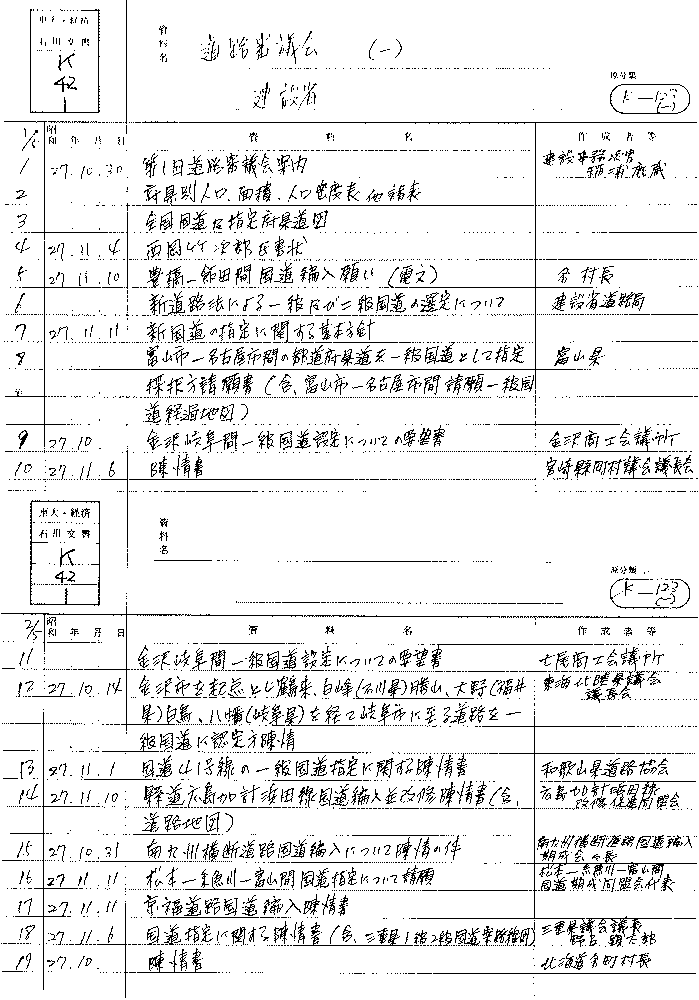 東大・経済
石川文書
K
42
1
資料名 道路審議会 (一)
建設省
原分類
K—123
(-1)
1/5 昭和 年 月 日 資料名 作成者等
1 27.10.30 第1回道路審議会案内 建設事務次官
2 府県別人口、面積、人口密度表 他諸表
3 全国国道及指定府県道図
4 27.11.4 西岡竹次郎氏書状
5 27.11.10 豊橋—飯田間国道編入願い (電文) 各村長
6 新道路法による一級及び二級国道の選定について 建設省道路局
7 27.11.11 新国道の指定に関する基本方針
8 富山市—名古屋市間の都道府県道を一級国道として指定 富山県
採択方請願書(含、富山市—名古屋市間請願一級国
道経過地図)
9 27.10. 金沢岐阜間一級国道設定についての要望書 金沢商工会議所
10 27.11.6 陳情書 宮崎縣町村議会議長会
東大・経済
石川文書
K
42
1
資料名
原分類
K—123
(-1)
2/5 昭和 年 月 日 資料名 作成者等
11 金沢岐阜間一級国道設定についての要望書 七尾商工会議所
12 27.10.14 金沢市を起点とし鶴来、白峰(石川県)勝山、大野(福井 東海北陸県議会
議長会
県)白鳥、八幡(岐阜県)を経て岐阜市に至る道路を一
級国道に認定方陳情
13 27.11.1 国道41号線の一級国道指定に関する陳情書 和歌山県道路協会
14 27.11.10 縣道広島加計浜田線国道編入並改修陳情書(含、 広島加計浜田線
改修促進同盟会
道路地図)
15 27.10.31 南九州横断道路国道編入について陳情の件 南九州横断道路国道編入
期成会会長
16 27.11.11 松本—糸魚川—富山間国道指定について請願 松本—糸魚川—富山間
国道期成同盟会代表
17 27.11.11 京福道路国道編入陳情書
18 27.11.6 国道指定に関する陳情書(含、三重県1級2級国道要路線図) 三重県議会議長
19 27.10. 陳情書 北海道各町村長